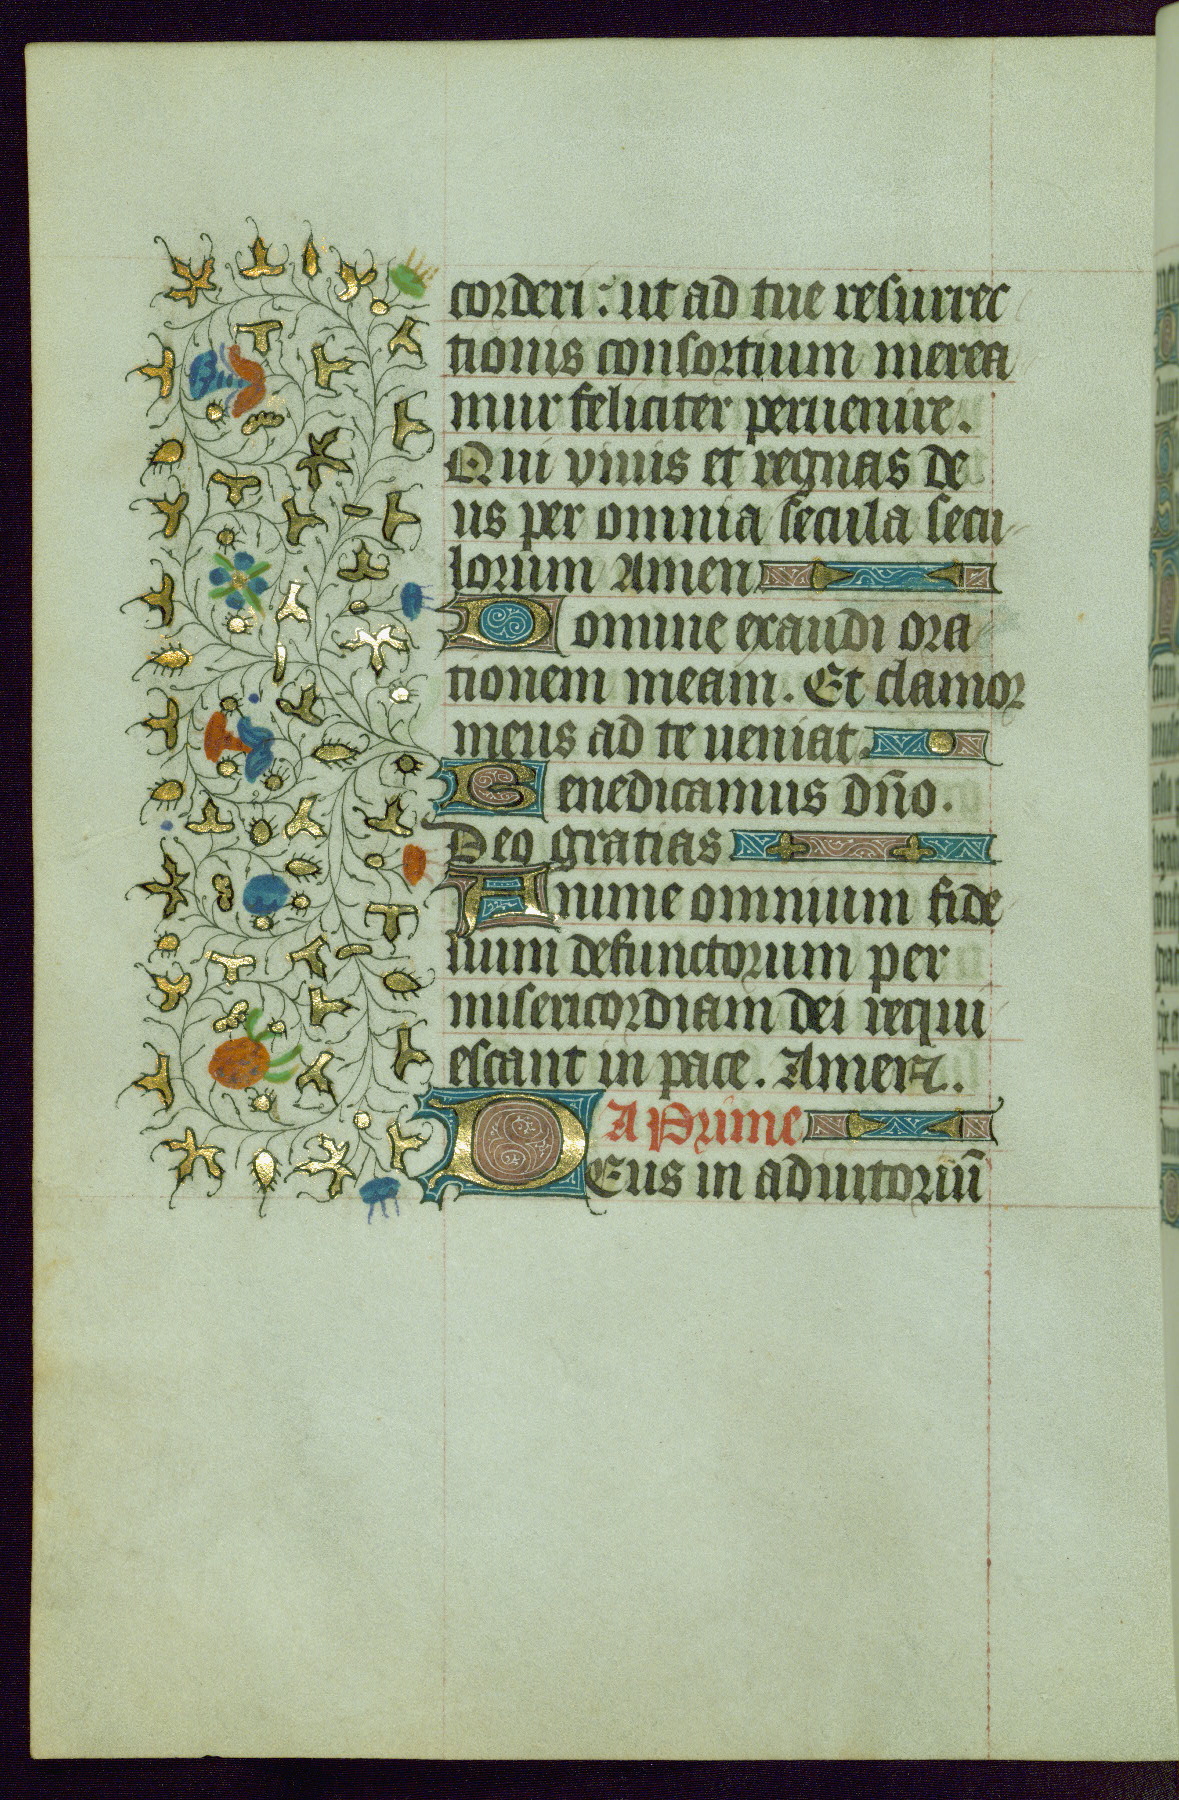 corderi : ut ad tue resurrec
tionis consortium merea
mur feliciter peruenire.
Qui viuis et regnas de
us per omnia secula secu
lorum Amen
Domine exaudi ora
tionem meam. Et clamor
meus ad te ueniat.
Benedicamus dño.
Deo gratias
Anime omnium fide
lium defunctorum per
misericordiam dei requi
escant in pace. Amen.
A Prime
DEus in adiutoriū